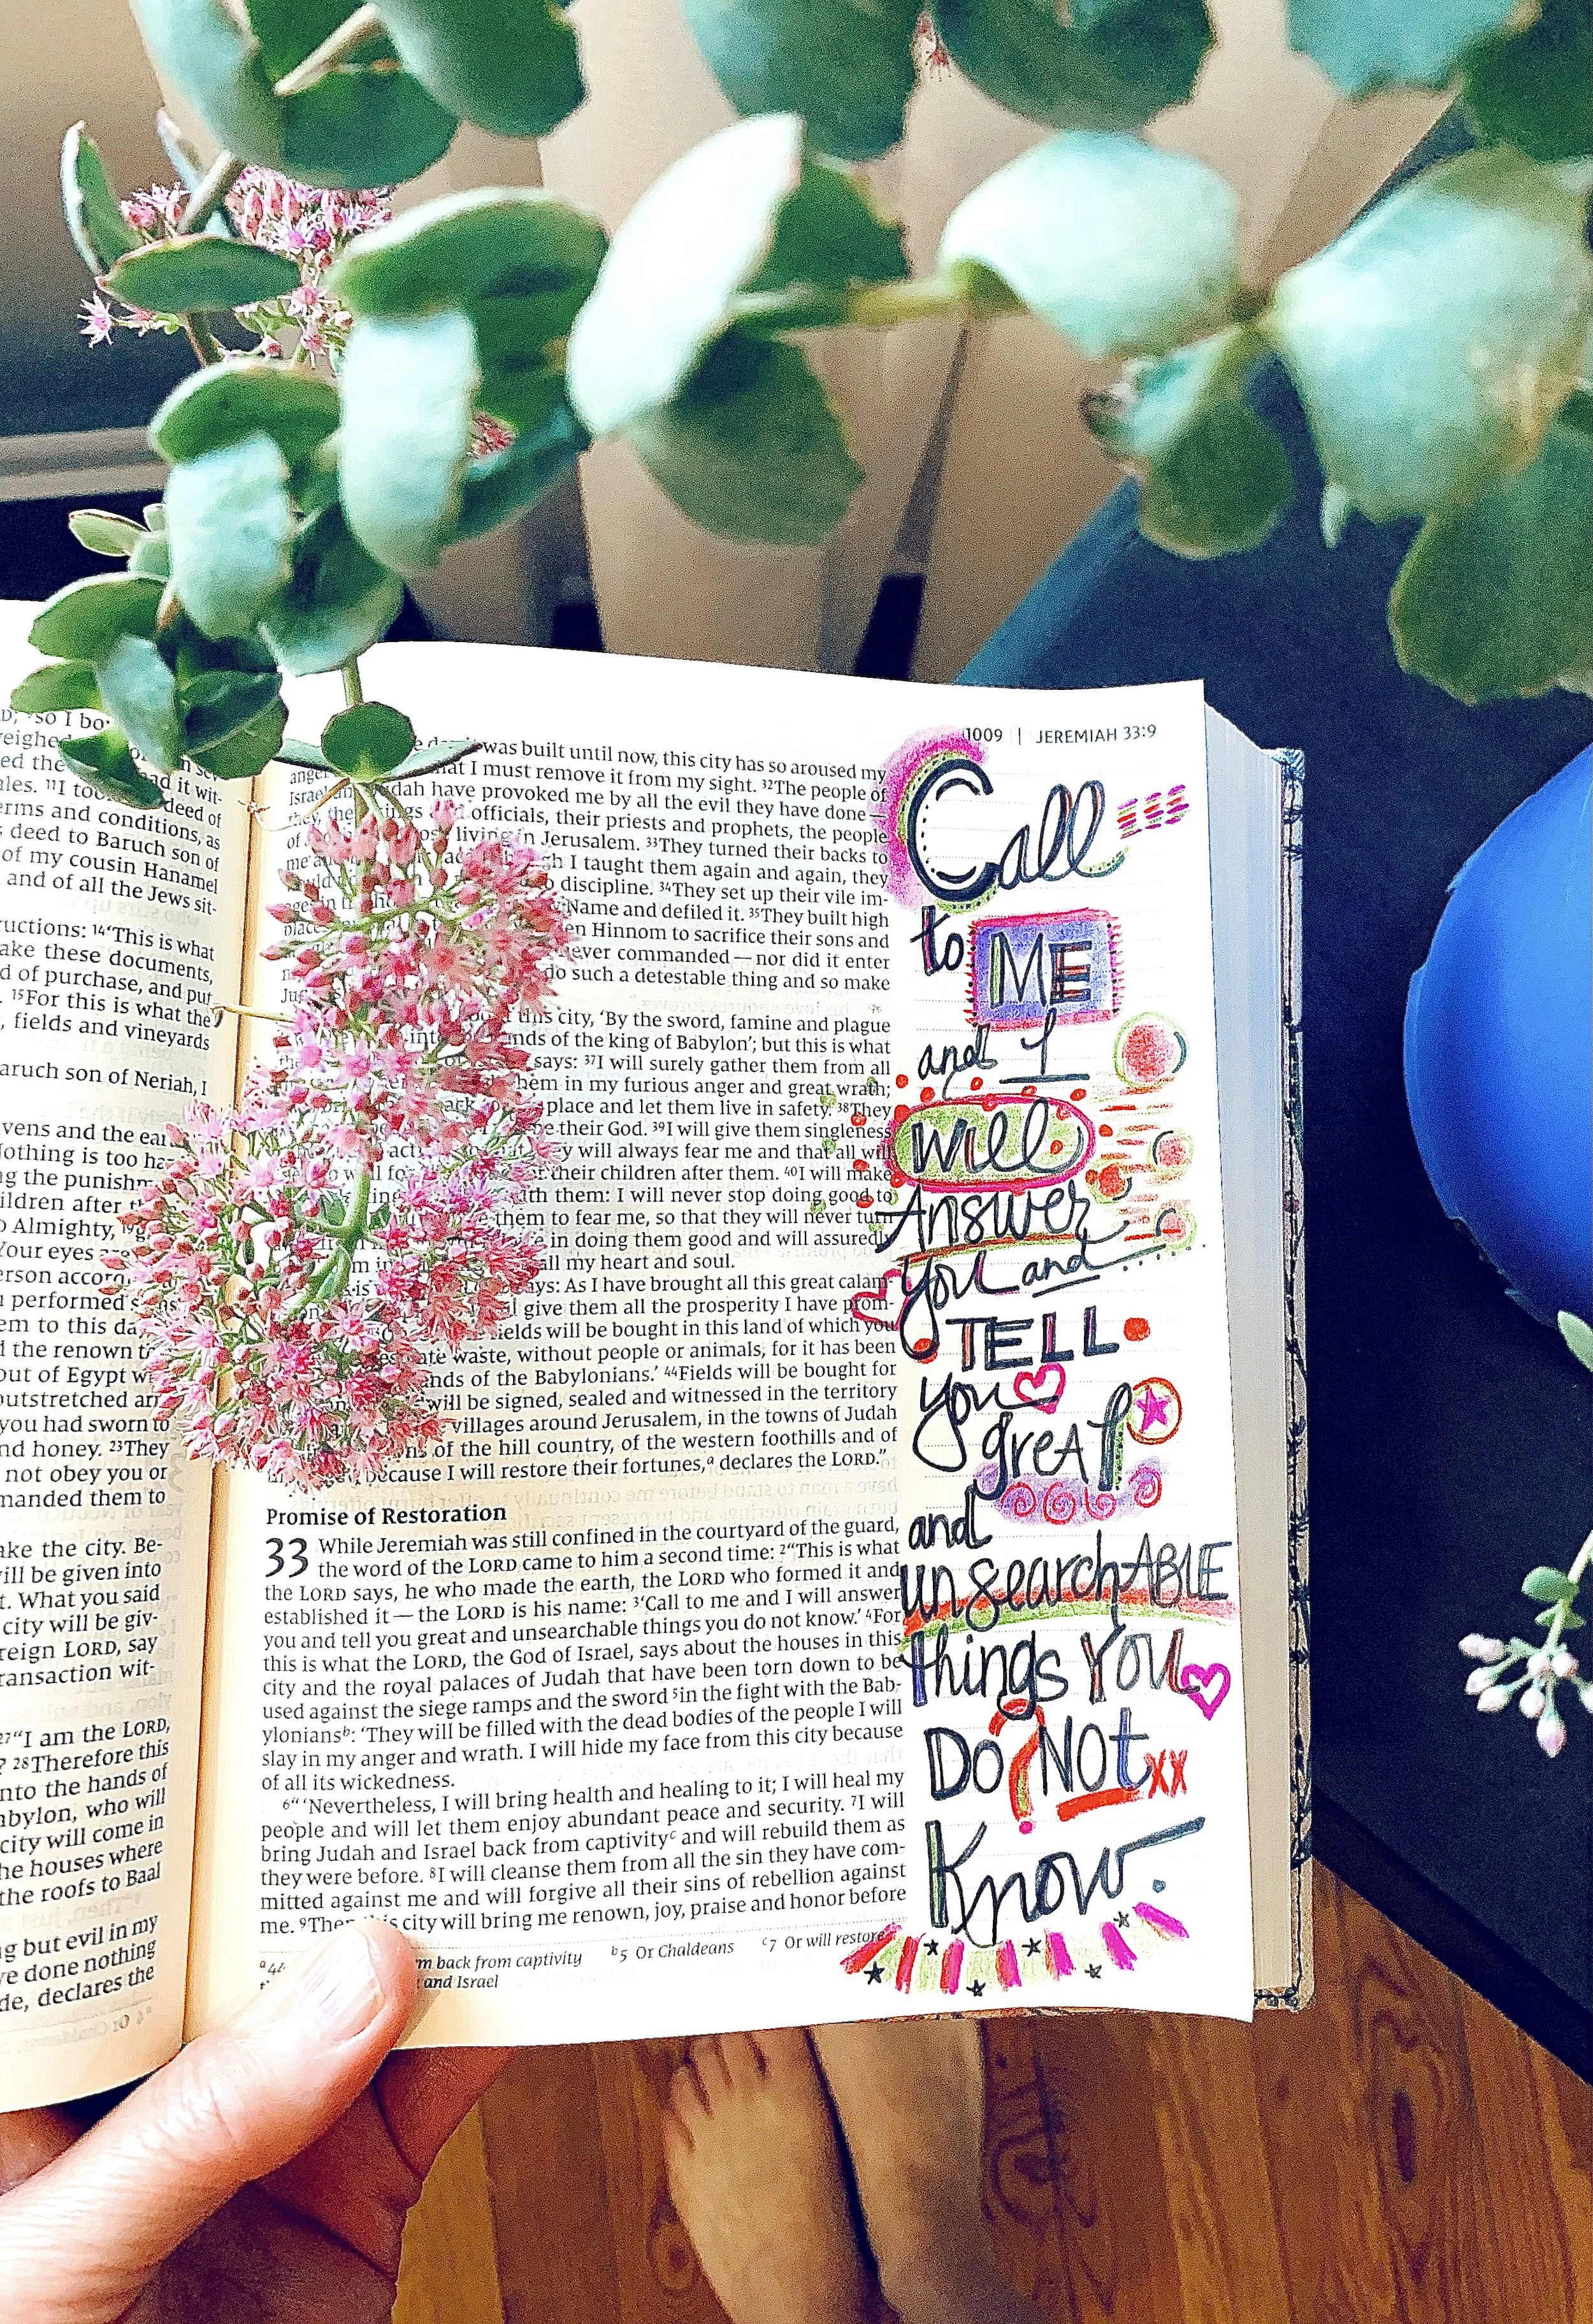 D; ⁹so I bo
weighed
ed the
ales. ¹¹I too deed of
erms and conditions, as
deed to Baruch son of
of my cousin Hanamel
and of all the Jews sit-
ructions: ¹⁴“This is what
ake these documents,
d of purchase, and put
. ¹⁵For this is what the
, fields and vineyards
aruch son of Neriah, I
vens and the ear
Nothing is too ha
g the punishm
ildren after t
o Almighty, ¹⁹g
Your eyes are
erson accord
u performed s
em to this da
d the renown t
out of Egypt w
outstretched ar
you had sworn to
nd honey. ²³They
not obey you or
manded them to
ake the city. Be-
vill be given into
t. What you said
city will be giv-
reign LORD, say
ransaction wit-
²⁷“I am the LORD,
? ²⁸Therefore this
nto the hands of
abylon, who will
city will come in
he houses where
the roofs to Baal
ng but evil in my
ve done nothing
de, declares the
1009 | JEREMIAH 33:9
was built until now, this city has so aroused my
ange that I must remove it from my sight. ³²The people of
Israel dah have provoked me by all the evil they have done—
they, the ings officials, their priests and prophets, the people
of living in Jerusalem. ³³They turned their backs to
me I taught them again and again, they
discipline. ³⁴They set up their vile im-
ages in Name and defiled it. ³⁵They built high
places en Hinnom to sacrifice their sons and
never commanded—nor did it enter
do such a detestable thing and so make
this city, ‘By the sword, famine and plague
nds of the king of Babylon’; but this is what
says: ³⁷I will surely gather them from all
hem in my furious anger and great wrath;
back place and let them live in safety. ³⁸They
be their God. ³⁹I will give them singleness
y will always fear me and that all will
their children after them. ⁴⁰I will make
with them: I will never stop doing good to
them to fear me, so that they will never turn
in doing them good and will assuredly
all my heart and soul.
says: As I have brought all this great calam-
give them all the prosperity I have prom-
ields will be bought in this land of which you
ate waste, without people or animals, for it has been
ands of the Babylonians.’ ⁴⁴Fields will be bought for
will be signed, sealed and witnessed in the territory
villages around Jerusalem, in the towns of Judah
of the hill country, of the western foothills and of
because I will restore their fortunes,ᵃ declares the LORD.”
Promise of Restoration
33 While Jeremiah was still confined in the courtyard of the guard,
the word of the LORD came to him a second time: ²“This is what
the LORD says, he who made the earth, the LORD who formed it and
established it—the LORD is his name: ³‘Call to me and I will answer
you and tell you great and unsearchable things you do not know.’ ⁴For
this is what the LORD, the God of Israel, says about the houses in this
city and the royal palaces of Judah that have been torn down to be
used against the siege ramps and the sword ⁵in the fight with the Bab-
yloniansᵇ: ‘They will be filled with the dead bodies of the people I will
slay in my anger and wrath. I will hide my face from this city because
of all its wickedness.
⁶“ ‘Nevertheless, I will bring health and healing to it; I will heal my
people and will let them enjoy abundant peace and security. ⁷I will
bring Judah and Israel back from captivityᶜ and will rebuild them as
they were before. ⁸I will cleanse them from all the sin they have com-
mitted against me and will forgive all their sins of rebellion against
me. ⁹Then this city will bring me renown, joy, praise and honor before
ᵃ44 m back from captivity ᵇ5 Or Chaldeans ᶜ7 Or will restore
and Israel
Call
to ME
and I
will
Answer
you and
TELL
you
greAt
and
unsearchABLE
things You
Do NOt xx
Know.